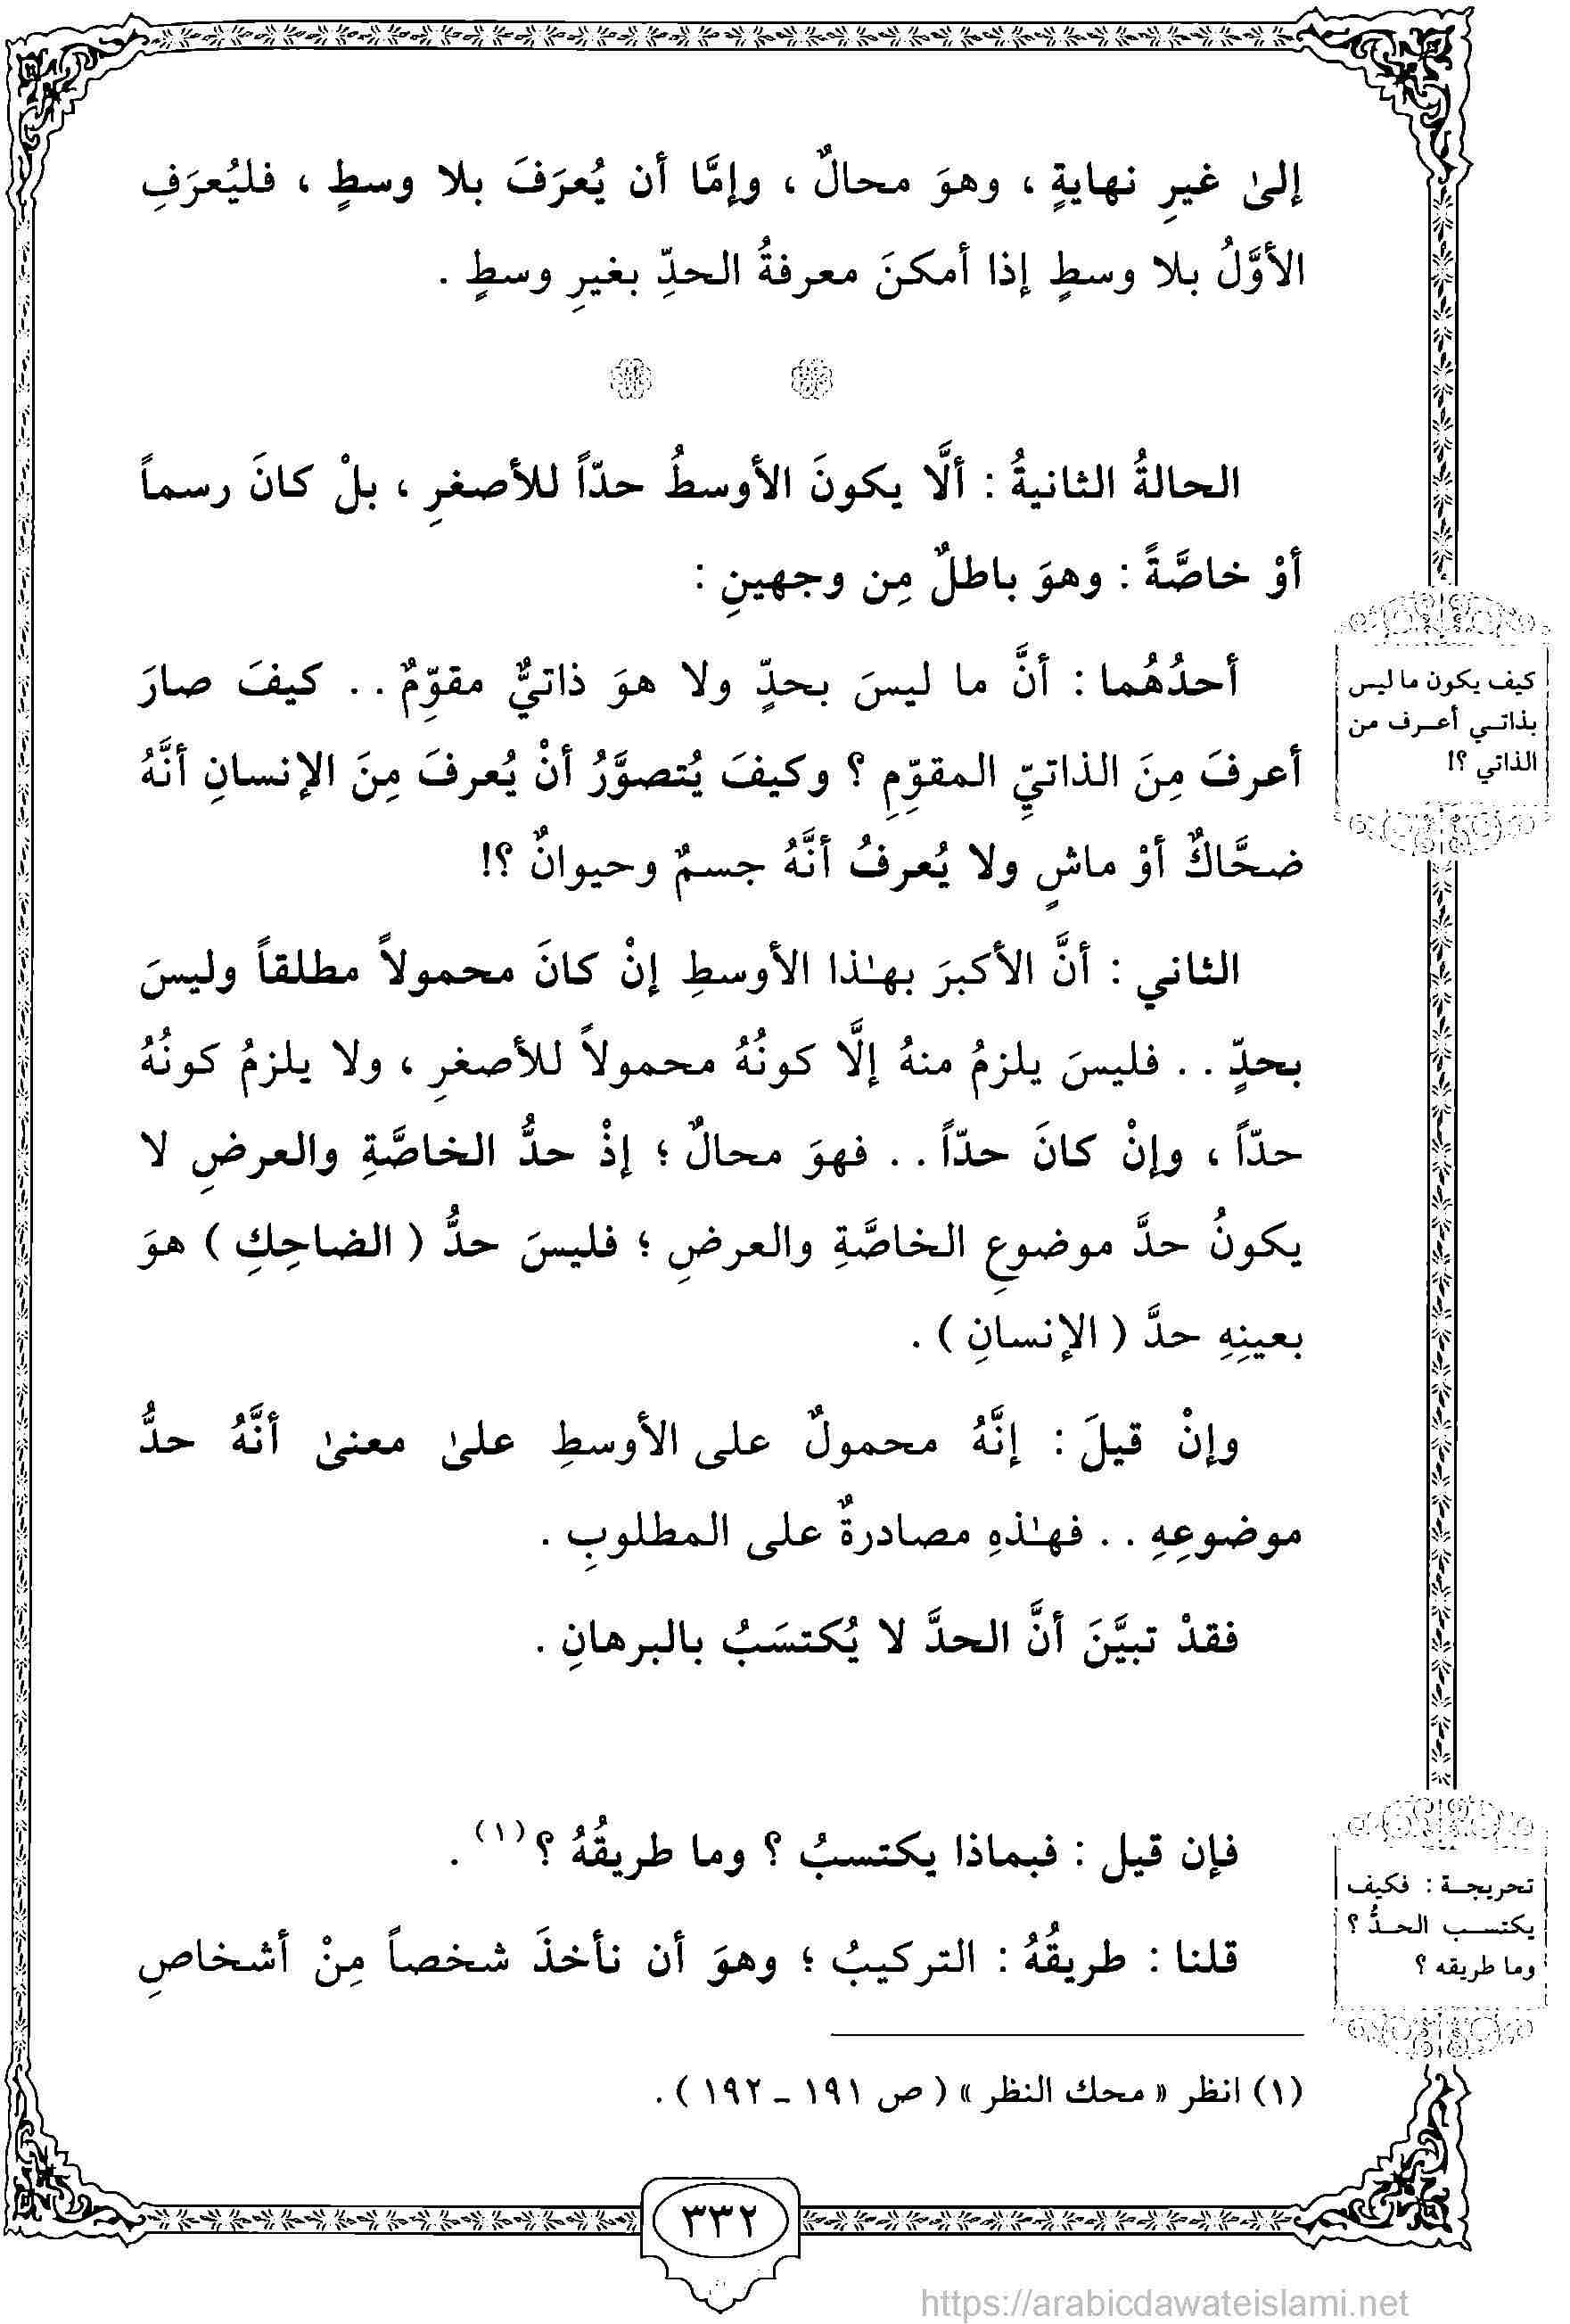 إلىٰ غيرِ نهايةٍ ، وهوَ محالٌ ، وإمَّا أن يُعرَفَ بلا وسطٍ ، فليُعرَفِ
الأوَّلُ بلا وسطٍ إذا أمكنَ معرفةُ الحدِّ بغيرِ وسطٍ .
الحالةُ الثانيةُ : ألَّا يكونَ الأوسطُ حدّاً للأصغرِ ، بلْ كانَ رسماً
أوْ خاصَّةً : وهوَ باطلٌ مِن وجهينِ :
أحدُهُما : أنَّ ما ليسَ بحدٍّ ولا هوَ ذاتيٌّ مقوِّمٌ . . كيفَ صارَ
أعرفَ مِنَ الذاتيِّ المقوِّمِ ؟ وكيفَ يُتصوَّرُ أنْ يُعرفَ مِنَ الإنسانِ أنَّهُ
ضحَّاكٌ أوْ ماشٍ ولا يُعرفُ أنَّهُ جسمٌ وحيوانٌ ؟!
كيف يكون ما ليس
بذاتـي أعـرف من
الذاتي ؟!
الثاني : أنَّ الأكبرَ بهـٰذا الأوسطِ إنْ كانَ محمولاً مطلقاً وليسَ
بحدٍّ . . فليسَ يلزمُ منهُ إلَّا كونُهُ محمولاً للأصغرِ ، ولا يلزمُ كونُهُ
حدّاً ، وإنْ كانَ حدّاً . . فهوَ محالٌ ؛ إذْ حدُّ الخاصَّةِ والعرضِ لا
يكونُ حدَّ موضوعِ الخاصَّةِ والعرضِ ؛ فليسَ حدُّ ( الضاحِكِ ) هوَ
بعينِهِ حدَّ ( الإنسانِ ) .
وإنْ قيلَ : إنَّهُ محمولٌ على الأوسطِ علىٰ معنىٰ أنَّهُ حدُّ
موضوعِهِ . . فهـٰذهِ مصادرةٌ على المطلوبِ .
فقدْ تبيَّنَ أنَّ الحدَّ لا يُكتسَبُ بالبرهانِ .
فإن قيل : فبماذا يكتسبُ ؟ وما طريقُهُ ؟(١) .
قلنا : طريقُهُ : التركيبُ ؛ وهوَ أن نأخذَ شخصاً مِنْ أشخاصِ
تحريجـة : فكيف
يكتسـب الحـدُّ ؟
وما طريقه ؟
(١) انظر « محك النظر » ( ص ١٩١ ـ ١٩٢ ) .
٣٣٢
https://arabicdawateislami.net